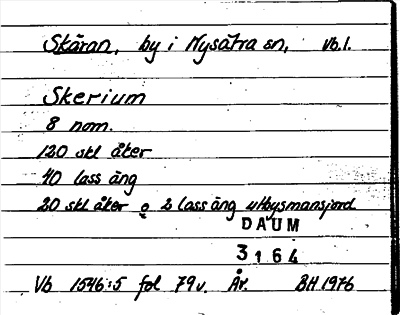 Skäran, by i Nysätra sn, Vb.l.
Skerium
8 nom.
120 skl åker
40 lass äng
20 skl åker o 2 lass äng utbysmansjord
DAUM
3164
Vb 1546:5 fol 79v. År. BH 1976